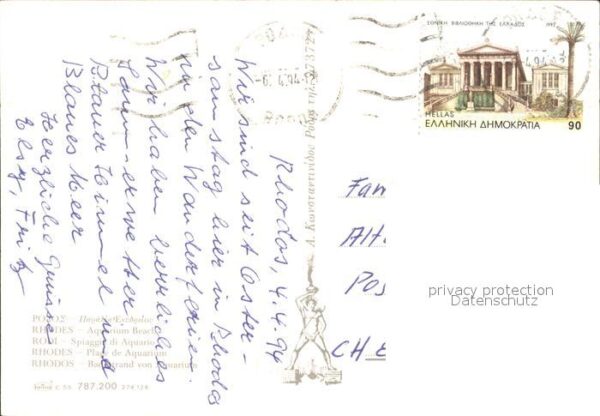 Rhodos, 4.4.94
Wir sind seit Oster-
samstag hier in Rhodos
in den Wanderferien.
Wir haben herrliches
Sommerwetter
Blauer Himmel und
Blaues Meer
Herzliche Grüsse
Elsy, Fritz
ΡΟΔΟΣ - Παραλία Ενυδρείου
RHODES - Aquarium Beach
RODI - Spiaggia di Aquario
RHODES - Plage de Aquarium
RHODOS - Badestrand von Aquarium
787.200
Λ. Κωνσταντινίδης Ρόδος
-6.4.94
ΕΘΝΙΚΗ ΒΙΒΛΙΟΘΗΚΗ ΤΗΣ ΕΛΛΑΔΟΣ
HELLAS
ΕΛΛΗΝΙΚΗ ΔΗΜΟΚΡΑΤΙΑ 90
Fam
Alt
Pos
CH
privacy protection
Datenschutz